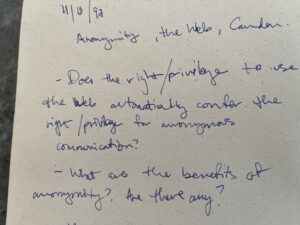 Anonymity, the Web, Camden.
- Does the right/privilege to use
the Web automatically confer the
right/privilege for anonymous
communication?
- What are the benefits of
anonymity? Are there any?